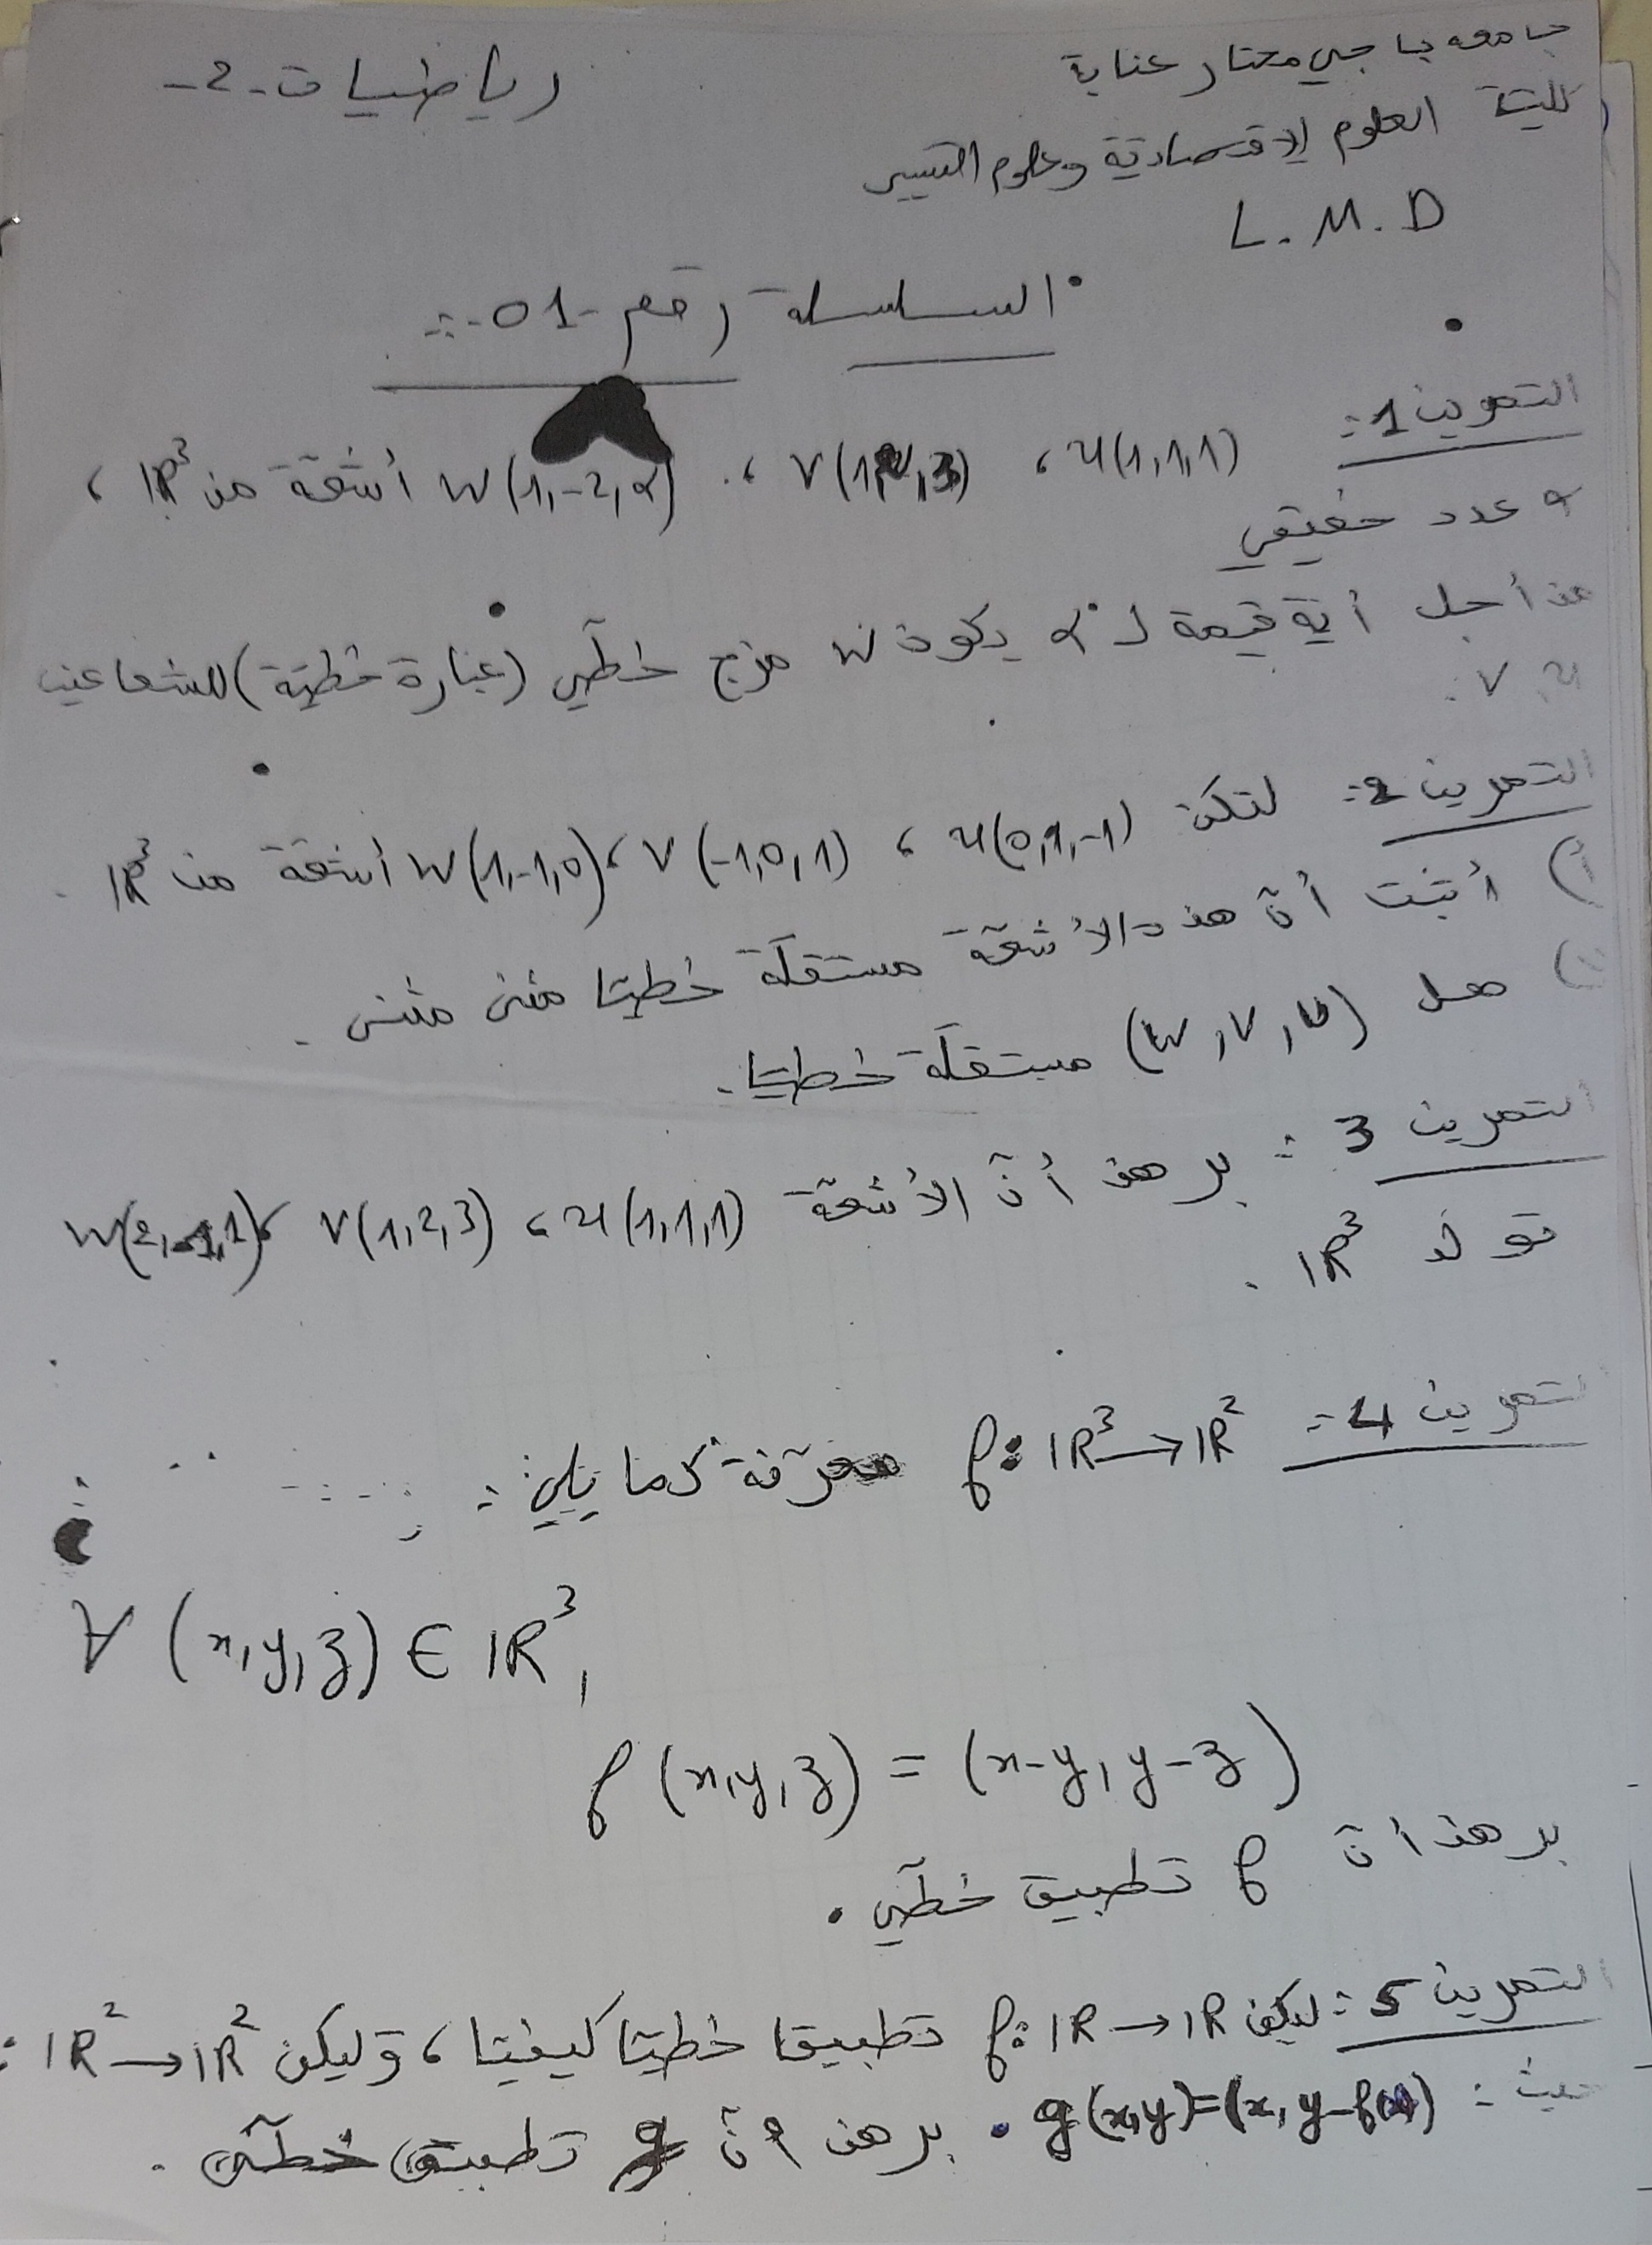 جامعة باجي مختار عنابة
رياضيات -2-
كلية العلوم الاقتصادية وعلوم التسيير
L.M.D
السلسلة رقم -01-:
التمرين 1: u(1,1,1) ، v(1,2,3) ، w(1,-2,α) أشعة من IR³ ،
α عدد حقيقي
من أجل أية قيمة لـ α يكون w مزج خطي (عبارة خطية) للشعاعين
u, v.
التمرين 2: لتكن u(0,1,-1) ، v(-1,0,1) ، w(1,-1,0) أشعة من IR³ .
أ) أثبت أن هذه الأشعة مستقلة خطيا مثنى مثنى .
ب) هل (w, v, u) مستقلة خطيا.
التمرين 3: برهن أن الأشعة u(1,1,1) ، v(1,2,3) ، w(2,-1,1)
تولد IR³ .
التمرين 4: f: IR³→IR² معرفة كما يلي :
∀ (x,y,z) ∈ IR³,
f(x,y,z) = (x-y, y-z)
برهن أن f تطبيق خطي .
التمرين 5: ليكن f: IR→IR تطبيقا خطيا كيفيا ، وليكن IR²→IR² :
حيث : g(x,y)=(x, y-f(x)) . برهن أن g تطبيق خطي .